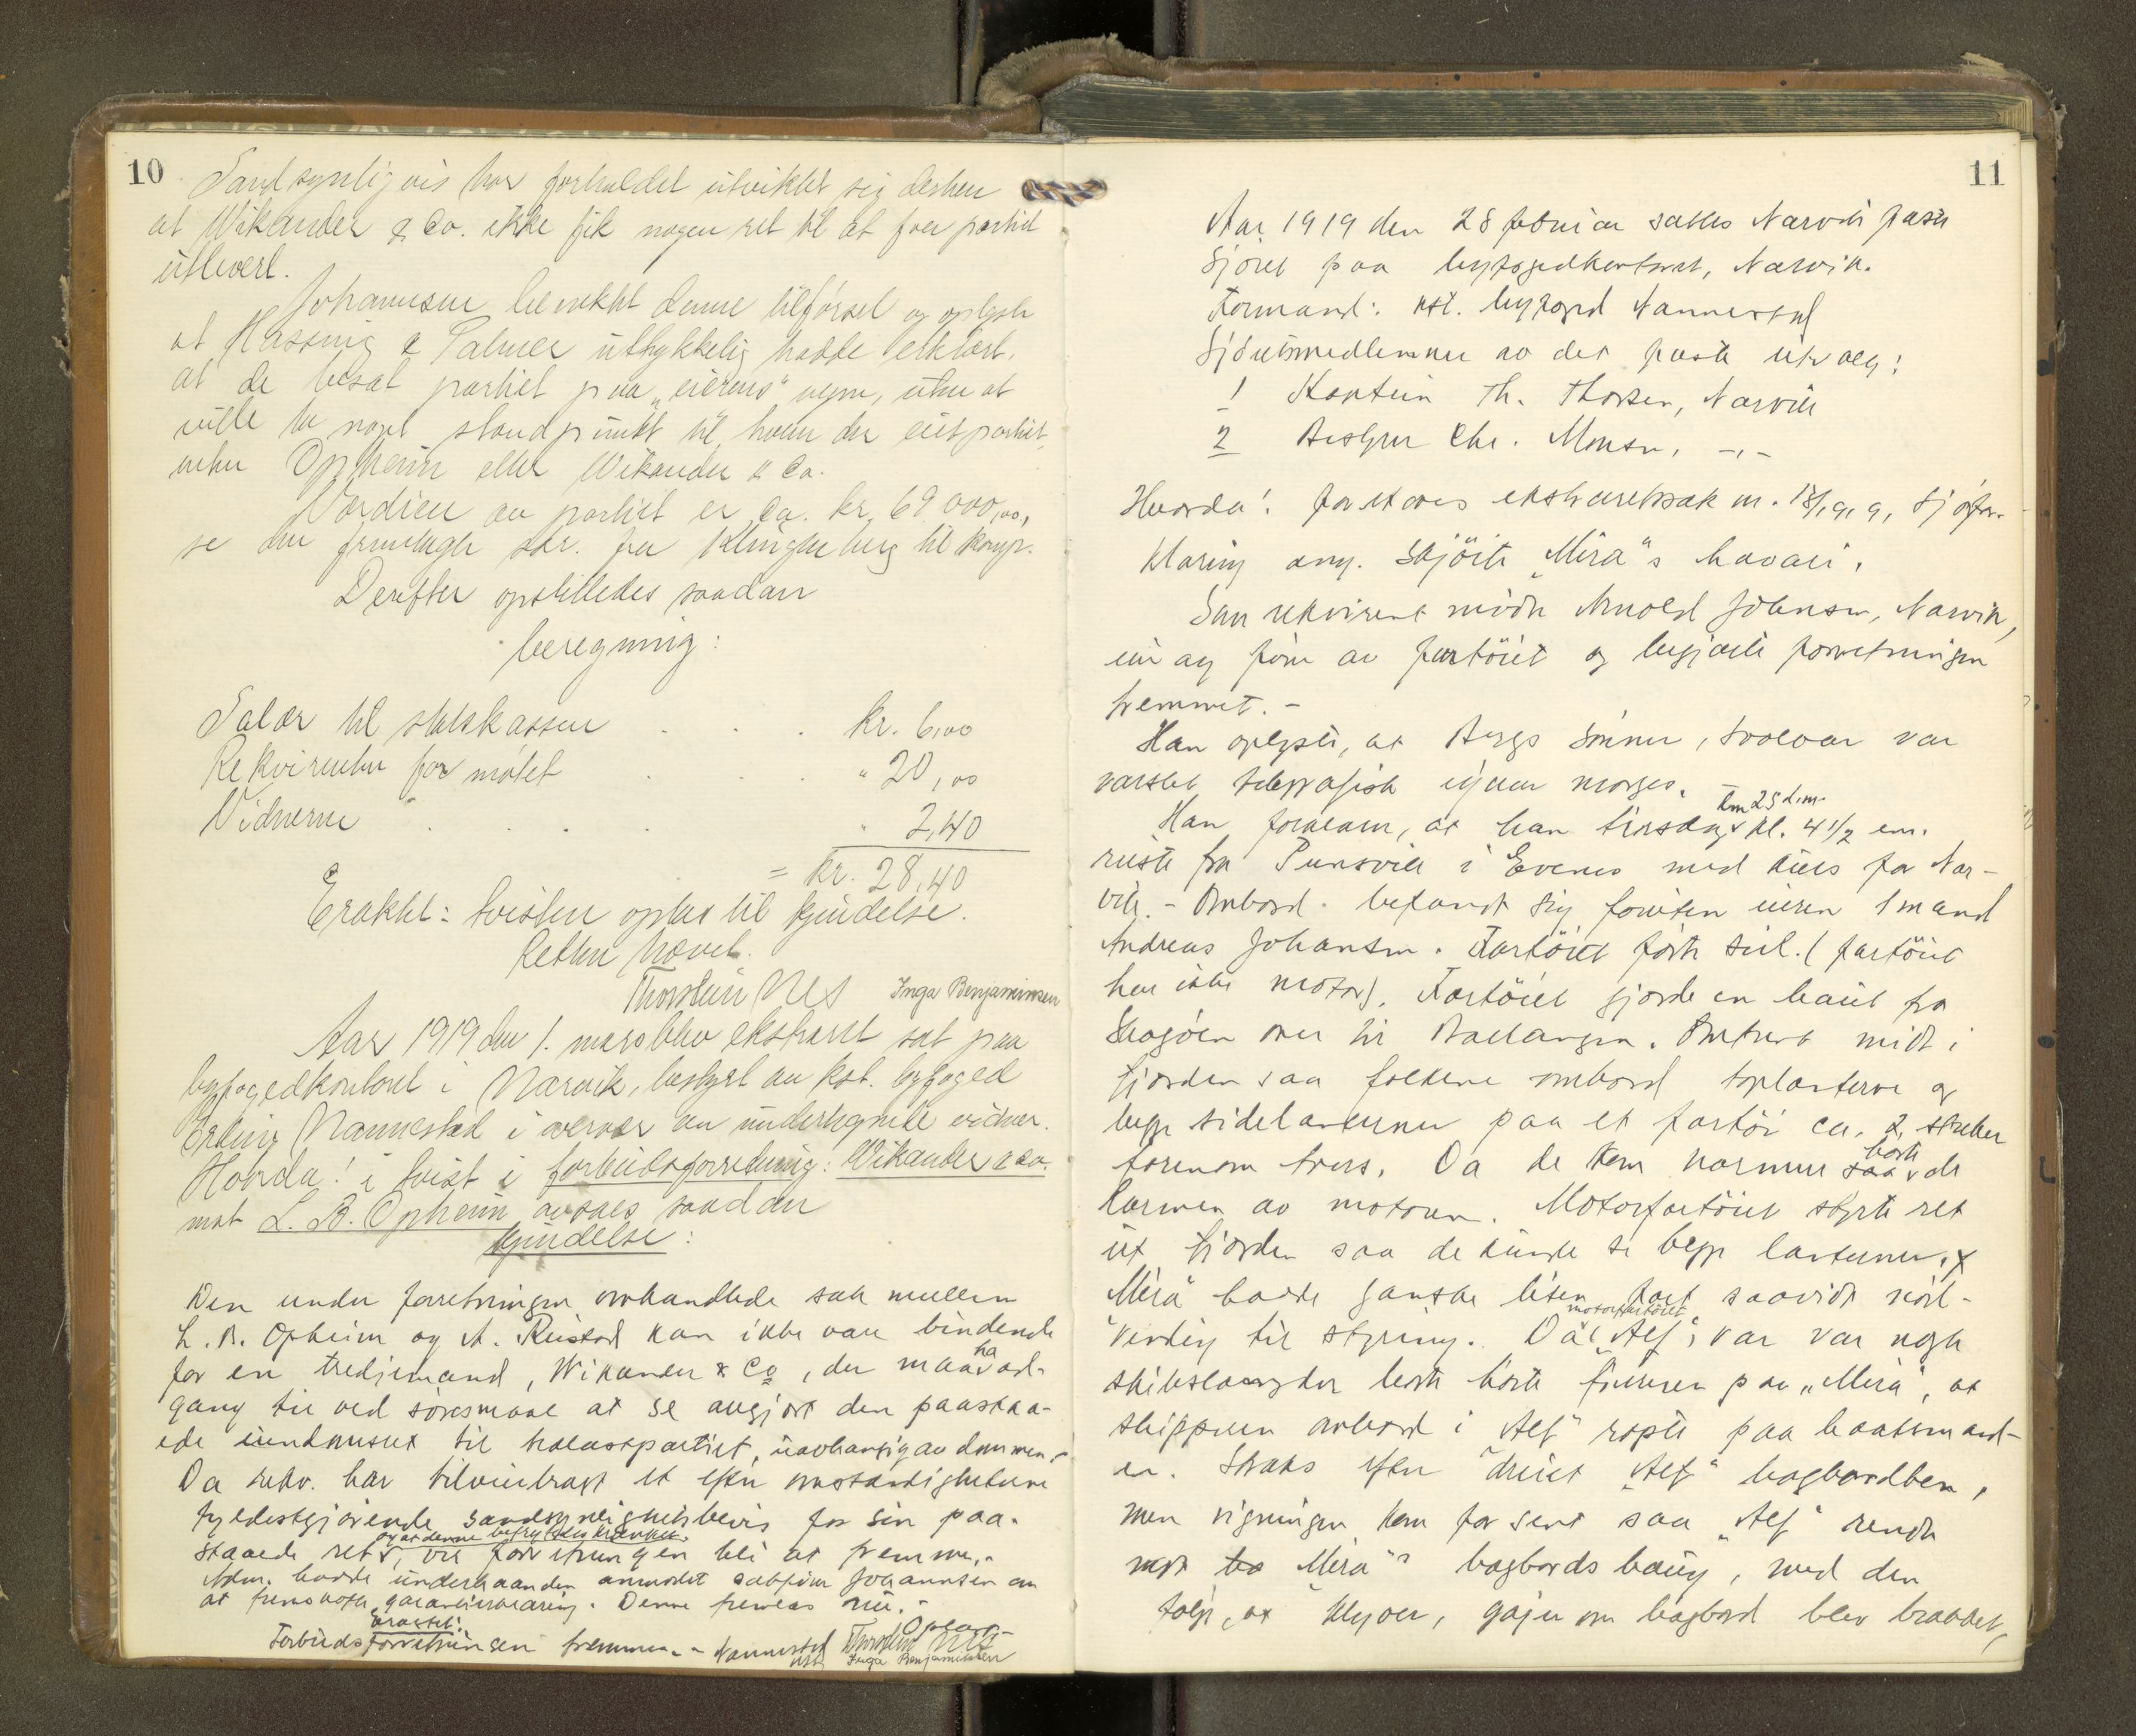 10
Sandsynligvis har forholdet utviklet sig derhen
at Wikander & Co. ikke fik nogen ret til at faa partiet
utlevert.
Johannsen benektet denne tilførsel og oplyste
at Hassing & Palmer uttrykkelig hadde erklært,
at de besat partiet paa "eierens" vegne, uten at
ville ta noget standpunkt til hvem der eiet partiet,
enten Opheim eller Wikander & Co.
Værdien av partiet er ca. kr. 69 000,00,
se den fremlagte skr. fra Klingenberg til komp.
Derefter opstilledes saadan
beregning:
Salær til statskassen . . . kr. 6,00
Rekvirenten for møtet . . . " 20,00
Vidnerne " . . . " 2,40
= kr. 28,40
Eragtet: tvisten optas til kjendelse.
Retten hævet.
Thorstein Nes Inga Benjaminsen
Aar 1919 den 1. mars blev ekstraret sat paa
byfogedkontoret i Narvik, bestyrt av kst. byfoged
Erling Nannestad i overvær av undertegnede vidner.
Hvorda! i tvist i forbudsforretning: Wikander & Co.
mot L. B. Opheim avsaes saadan
kjendelse:
Den under forretningen omhandlede sak mellem
L. B. Opheim og A. Rustad kan ikke være bindende
for en tredjemand, Wikander & Co, der maa ha ad-
gang til ved søksmaal at se avgjort den paastaa-
ede eiendomsret til trælastpartiet, uavhængig av dommen.-
Da rekv. har tilveiebragt et efter omstændighetene
fyldestgjørende sandsynlighetsbevis for sin paa-
og at denne befryktes krænket.
staaede ret, vil forretningen bli at fremme.-
Adm. hadde underhaanden anmodet sakfører Johannsen om
at fremskaffe garantierklæring. Denne fremlas nu.-
Oplæst-
eragtet:
Forbudsforretningen fremmes.- Nannestad Thorstein Nes
kst. Inga Benjaminsen
11
Aar 1919 den 28 februar sattes Narvik faste
Sjøret paa byfogedkontoret, Narvik.
Formand: kst. byfoged Nannestad
Sjøretsmedlemmer av det faste utvalg:
1 Kaptein Th. Thorsen, Narvik
2 Bestyrer Chr. Monsen, -"-
Hvorda! foretoges ekstraretssak nr. 18/1919, Sjøfor-
klaring ang. skjøite "Mira"s havari.
Som rekvirent møtte Arnold Johnsen, Narvik,
eier og fører av fartøiet og begjærte forretningen
fremmet.-
Han oplyste, at Bergs Sønner, Svolvær var
varslet telegrafisk igaar morges.
den 25 d.m.
Han forklarte, at han tirsdag kl. 4 1/2 em.
reiste fra Punsvik i Evenes med kurs for Nar-
vik.- Ombord befandt sig foruten eieren 1 mand
Andreas Johansen. Fartøiet førte seil. (fartøiet
har ikke motor). Fartøiet gjorde en baut fra
Skogøen over til Ballangen. Omtrent midt i
fjorden saa folkene ombord toplanterne og
begge sidelanterner paa et fartøi ca. 2 streker
forenom tvers. Da de kom nærmere hørte de
larmen av motoren. Motorfartøiet styrte ret
ut fjorden saa de kunde se begge lanterner.
"Mira" hadde ganske liten fart saavidt nød-
motorfartøiet
vendig til styring. Da "Alf" var nogle
skibslængder borte hørte føreren paa "Mira", at
skipperen ombord i "Alf" ropte paa baatsmand-
en. Straks efter dreiet "Alf" bagbord over,
men vigningen kom for sent saa "Alf" rendte
mot "Mira"s bagbords baug, med den
følge, at klyver, gajer om bagbord blev brækket,